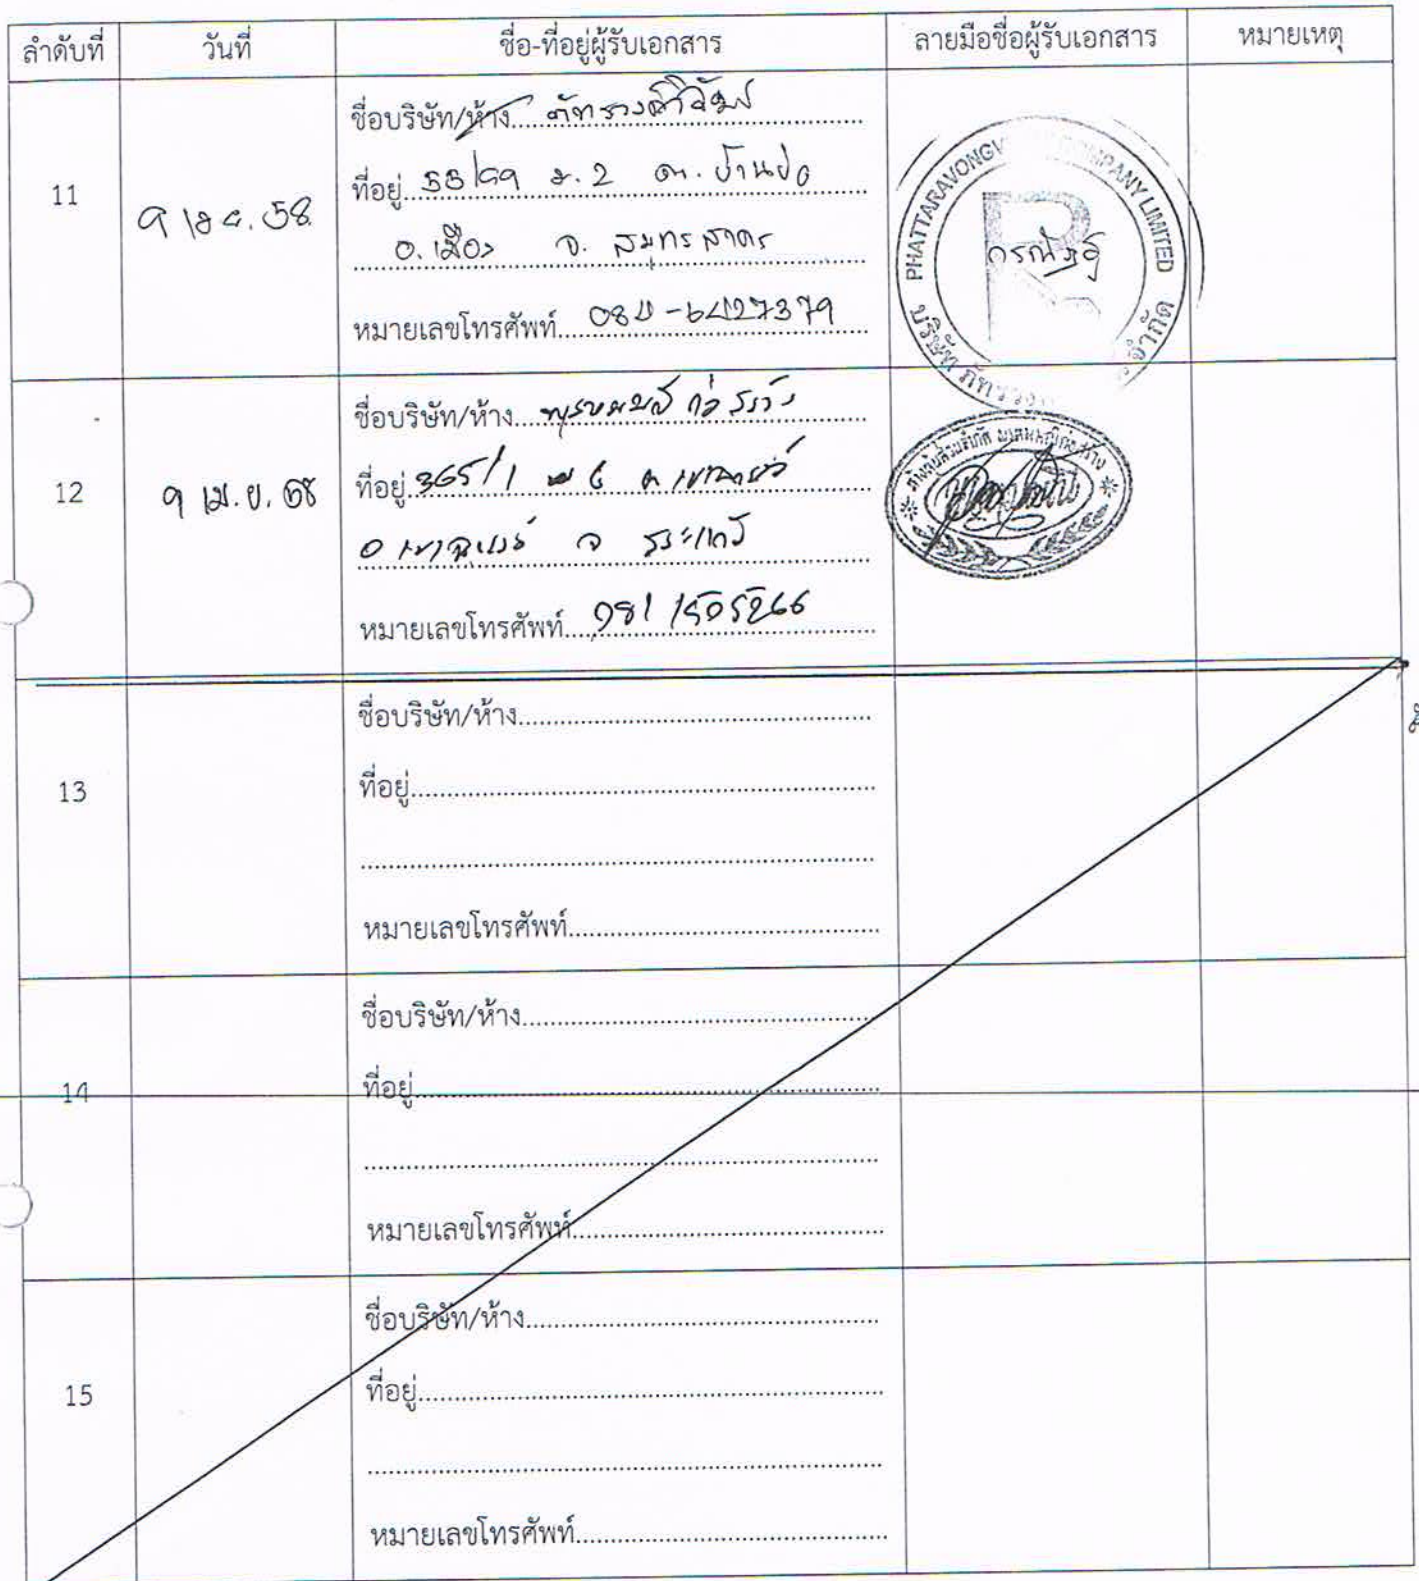 ลำดับที่ วันที่ ชื่อ-ที่อยู่ผู้รับเอกสาร ลายมือชื่อผู้รับเอกสาร หมายเหตุ
11
9 เม.ย. 58
ชื่อบริษัท/ห้าง
ที่อยู่ 55/99 ม.2 ต. บ้านบ่อ
อ. เมือง จ. สมุทรสาคร
หมายเลขโทรศัพท์
PHATTARAVONGV COMPANY LIMITED
บริษัท ภัทรวง จำกัด
12
9 เม.ย. 58
ชื่อบริษัท/ห้าง ก่อสร้าง
ที่อยู่ 365/1 ม 6 ต
อ เขาฉกรรจ์ จ สระแก้ว
หมายเลขโทรศัพท์ 081 1505266
13
ชื่อบริษัท/ห้าง
ที่อยู่
หมายเลขโทรศัพท์
14
ชื่อบริษัท/ห้าง
ที่อยู่
หมายเลขโทรศัพท์
15
ชื่อบริษัท/ห้าง
ที่อยู่
หมายเลขโทรศัพท์